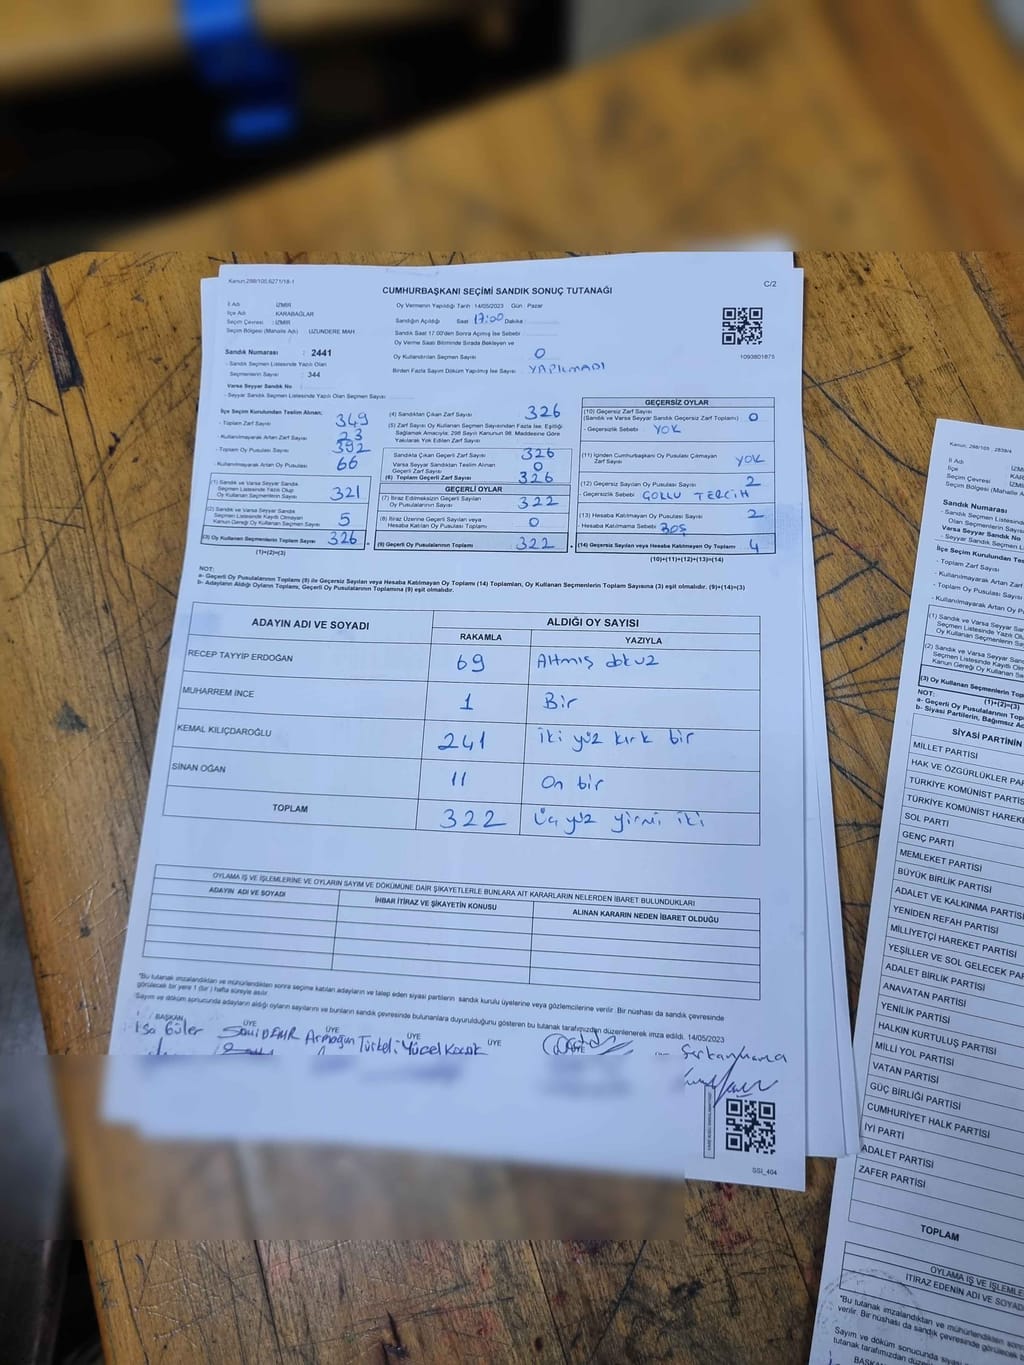 Kanun:298/105,6271/18-1
C/2
CUMHURBAŞKANI SEÇİMİ SANDIK SONUÇ TUTANAĞI
İl Adı : İZMİR
İlçe Adı : KARABAĞLAR
Seçim Çevresi : İZMİR
Seçim Bölgesi (Mahalle Adı) : UZUNDERE MAH
Sandık Numarası : 2441
- Sandık Seçmen Listesinde Yazılı Olan
Seçmenlerin Sayısı : 344
Varsa Seyyar Sandık No
- Seyyar Sandık Seçmen Listesinde Yazılı Olan Seçmen Sayısı
Oy Vermenin Yapıldığı Tarih : 14/05/2023 Gün : Pazar
Sandığın Açıldığı Saat 17:00 Dakika
Sandık Saat 17.00'den Sonra Açmış İse Sebebi
Oy Verme Saati Bitiminde Sırada Bekleyen ve
Oy Kullandırılan Seçmen Sayısı 0
Birden Fazla Sayım Döküm Yapılmış İse Sayısı YAPILMADI
1093801875
İlçe Seçim Kurulundan Teslim Alınan;
- Toplam Zarf Sayısı 349
- Kullanılmayarak Artan Zarf Sayısı 23
- Toplam Oy Pusulası Sayısı 392
- Kullanılmayarak Artan Oy Pusulası 66
(1) Sandık ve Varsa Seyyar Sandık
Seçmen Listesinde Yazılı Olup
Oy Kullanan Seçmenlerin Sayısı 321
(2) Sandık ve Varsa Seyyar Sandık
Seçmen Listesinde Kayıtlı Olmayan
Kanun Gereği Oy Kullanan Seçmen Sayısı 5
(3) Oy Kullanan Seçmenlerin Toplam Sayısı 326
(1)+(2)=(3)
(4) Sandıktan Çıkan Zarf Sayısı 326
(5) Zarf Sayısı Oy Kullanan Seçmen Sayısından Fazla İse, Eşitliği
Sağlamak Amacıyla; 298 Sayılı Kanunun 98. Maddesine Göre
Yakılarak Yok Edilen Zarf Sayısı
Sandıkta Çıkan Geçerli Zarf Sayısı 326
Varsa Seyyar Sandıktan Teslim Alınan
Geçerli Zarf Sayısı 0
(6) Toplam Geçerli Zarf Sayısı 326
GEÇERLİ OYLAR
(7) İtiraz Edilmeksizin Geçerli Sayılan
Oy Pusulalarının Sayısı 322
(8) İtiraz Üzerine Geçerli Sayılan veya
Hesaba Katılan Oy Pusulası Toplamı 0
(9) Geçerli Oy Pusulalarının Toplamı 322
GEÇERSİZ OYLAR
(10) Geçersiz Zarf Sayısı
(Sandık ve Varsa Seyyar Sandık Geçersiz Zarf Toplamı) 0
- Geçersizlik Sebebi YOK
(11) İçinden Cumhurbaşkanı Oy Pusulası Çıkmayan
Zarf Sayısı YOK
(12) Geçersiz Sayılan Oy Pusulası Sayısı 2
- Geçersizlik Sebebi ÇOKLU TERCİH
(13) Hesaba Katılmayan Oy Pusulası Sayısı 2
- Hesaba Katılmama Sebebi BOŞ
(14) Geçersiz Sayılan veya Hesaba Katılmayan Oy Toplamı 4
(10)+(11)+(12)+(13)=(14)
NOT:
a- Geçerli Oy Pusulalarının Toplamı (9) ile Geçersiz Sayılan veya Hesaba Katılmayan Oy Toplamı (14) Toplamları, Oy Kullanan Seçmenlerin Toplam Sayısına (3) eşit olmalıdır. (9)+(14)=(3)
b- Adayların Aldığı Oyların Toplamı, Geçerli Oy Pusulalarının Toplamına (9) eşit olmalıdır.
ADAYIN ADI VE SOYADI
ALDIĞI OY SAYISI
RAKAMLA YAZIYLA
RECEP TAYYİP ERDOĞAN 69 Altmış dokuz
MUHARREM İNCE 1 Bir
KEMAL KILIÇDAROĞLU 241 iki yüz kırk bir
SİNAN OĞAN 11 On bir
TOPLAM 322 Üç yüz yirmi iki
OYLAMA İŞ VE İŞLEMLERİNE VE OYLARIN SAYIM VE DÖKÜMÜNE DAİR ŞİKAYETLERLE BUNLARA AİT KARARLARIN NELERDEN İBARET BULUNDUKLARI
ADAYIN ADI VE SOYADI İHBAR İTİRAZ VE ŞİKAYETİN KONUSU ALINAN KARARIN NEDEN İBARET OLDUĞU
"Bu tutanak imzalandıktan ve mühürlendikten sonra seçime katılan adayların ve talep eden siyasi partilerin sandık kurulu üyelerine veya gözlemcilerine verilir. Bir nüshası da sandık çevresinde
görülecek bir yere 1 (bir) hafta süreyle asılır.
Sayım ve döküm sonucunda adayların aldığı oyların sayılarını ve bunların sandık çevresinde bulunanlara duyurulduğunu gösteren bu tutanak tarafımızdan düzenlenerek imza edildi. 14/05/2023
BAŞKAN ÜYE ÜYE ÜYE ÜYE
İsa Güler DEMİR Armağan Türkeli Yücel
SSİ_404
Kanun; 298/105 : 2839/4
İl Adı
İlçe
Seçim Çevresi
Seçim Bölgesi (Mahalle
Sandık Numarası
- Sandık Seçmen Listesinde
Olan Seçmenlerin Sayısı
Varsa Seyyar Sandık No
- Seyyar Sandık Seçmen
İlçe Seçim Kurulundan
- Toplam Zarf Sayısı
- Kullanılmayarak Artan
- Toplam Oy Pusulası Sayısı
- Kullanılmayarak Artan Oy
(1) Sandık ve Varsa Seyyar
Seçmen Listesinde Yazılı
Oy Kullanan Seçmenlerin
(2) Sandık ve Varsa Seyyar
Seçmen Listesinde Kayıtlı
Kanun Gereği Oy Kullanan
(3) Oy Kullanan Seçmenlerin
(1)+(2)=(3)
NOT:
a- Geçerli Oy Pusulalarının
b- Siyasi Partilerin, Bağımsız
SİYASİ PARTİNİN
MİLLET PARTİSİ
HAK VE ÖZGÜRLÜKLER
TÜRKİYE KOMÜNİST
TÜRKİYE KOMÜNİST
SOL PARTİ
GENÇ PARTİ
MEMLEKET PARTİSİ
BÜYÜK BİRLİK PARTİSİ
ADALET VE KALKINMA PARTİSİ
YENİDEN REFAH PARTİSİ
MİLLİYETÇİ HAREKET PARTİSİ
YEŞİLLER VE SOL GELECEK
ADALET BİRLİK PARTİSİ
ANAVATAN PARTİSİ
YENİLİK PARTİSİ
HALKIN KURTULUŞ PARTİSİ
MİLLİ YOL PARTİSİ
VATAN PARTİSİ
GÜÇ BİRLİĞİ PARTİSİ
CUMHURİYET HALK PARTİSİ
İYİ PARTİ
ADALET PARTİSİ
ZAFER PARTİSİ
TOPLAM
OYLAMA İŞ VE
İTİRAZ EDENİN ADI VE
"Bu tutanak imzalandıktan ve mühürlendikten
verilir. Bir nüshası da sandık çevresinde
Sayım ve döküm sonucunda
tutanak tarafımızdan